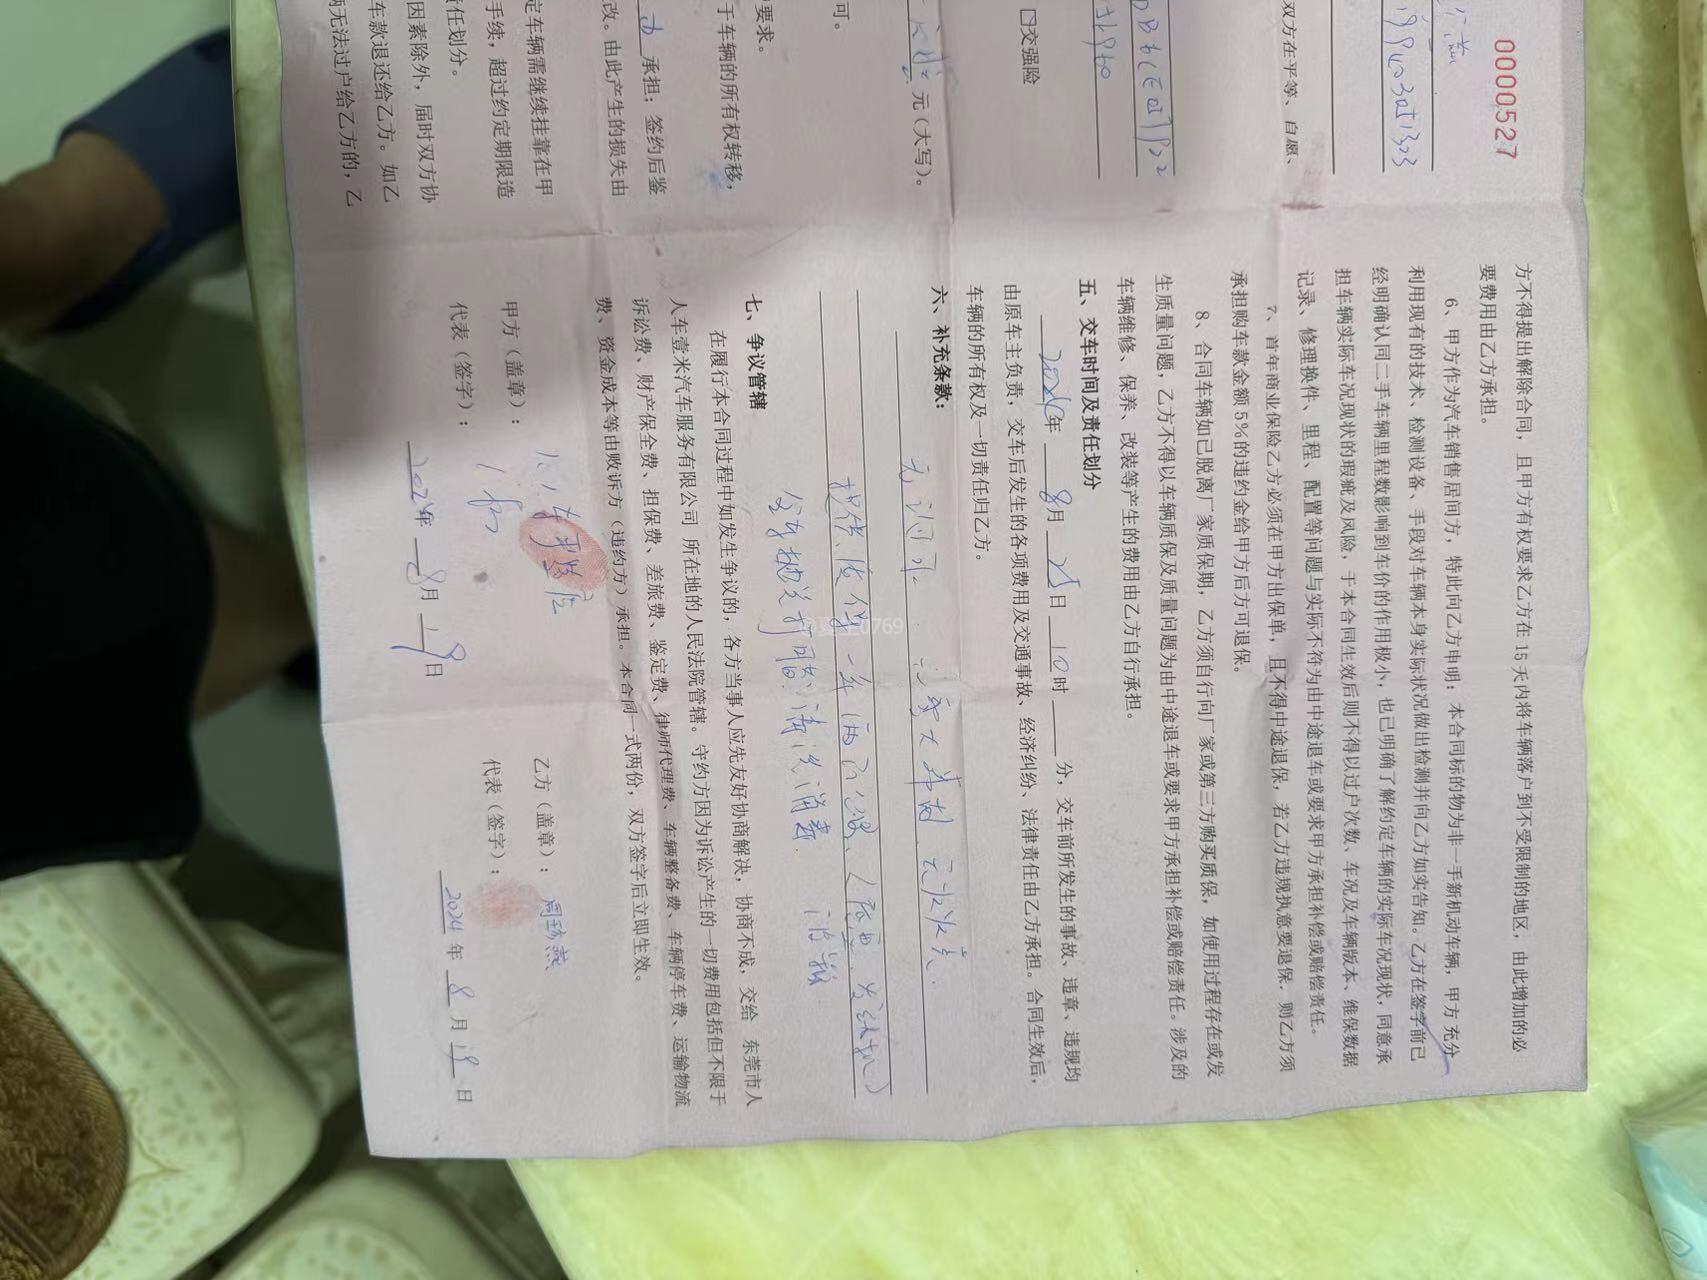 0000527
双方在平等、自愿、
□交强险
元（大写）。
可。
要求。
于车辆的所有权转移，
承担；签约后鉴
改。由此产生的损失由
定车辆需继续挂靠在甲
手续，超过约定期限造
责任划分。
因素除外，届时双方协
车款退还给乙方。如乙
辆无法过户给乙方的，乙
方不得提出解除合同，且甲方有权要求乙方在15天内将车辆落户到不受限制的地区，由此增加的必
要费用由乙方承担。
6、甲方作为汽车销售居间方，特此向乙方申明：本合同标的物为非一手新机动车辆，甲方充分
利用现有的技术、检测设备、手段对车辆本身实际状况做出检测并向乙方如实告知。乙方在签字前已
经明确认同二手车辆里程数影响到车价的作用极小，也已明确了解约定车辆的实际车况现状，同意承
担车辆实际车况现状的瑕疵及风险，于本合同生效后则不得以过户次数、车况及车辆版本、维保数据
记录、修理换件、里程、配置等问题与实际不符为由中途退车或要求甲方承担补偿或赔偿责任。
7、首年商业保险乙方必须在甲方出保单，且不得中途退保，若乙方违规执意要退保，则乙方须
承担购车款金额5%的违约金给甲方后方可退保。
8、合同车辆如已脱离厂家质保期，乙方须自行向厂家或第三方购买质保，如使用过程存在或发
生质量问题，乙方不得以车辆质保及质量问题为由中途退车或要求甲方承担补偿或赔偿责任。涉及的
车辆维修、保养、改装等产生的费用由乙方自行承担。
五、交车时间及责任划分
年 8月 21日 10时 分，交车前所发生的事故、违章、违规均
由原车主负责，交车后发生的各项费用及交通事故、经济纠纷、法律责任由乙方承担。合同生效后，
车辆的所有权及一切责任归乙方。
六、补充条款：
无泡水 大事故 无火烧
提供质保一年
七、争议管辖
在履行本合同过程中如发生争议的，各方当事人应先友好协商解决，协商不成，交给 东莞市人
人车壹米汽车服务有限公司 所在地的人民法院管辖。守约方因为诉讼产生的一切费用包括但不限于
诉讼费、财产保全费、担保费、差旅费、鉴定费、律师代理费、车辆整备费、车辆停车费、运输物流
费、资金成本等由败诉方（违约方）承担。本合同一式两份，双方签字后立即生效。
甲方（盖章）：
代表（签字）：
2024年 8月 19日
乙方（盖章）：
代表（签字）：
2024年 8月 19日